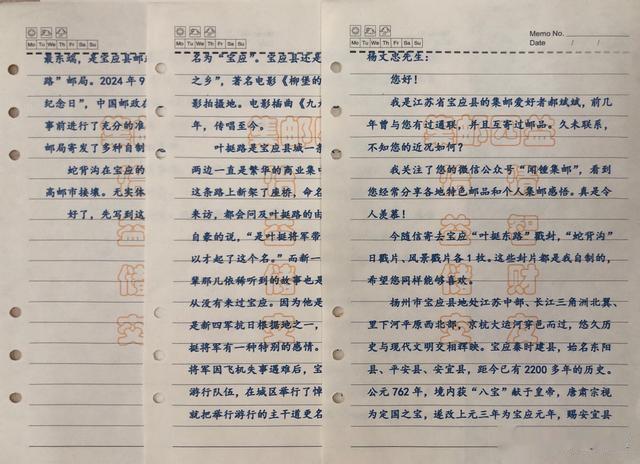 Memo No.
Mo Tu We Th Fr Sa Su
Date / /
杨文忠先生：
您好！
我是江苏省宝应县的集邮爱好者郝斌斌，前几
年曾与您有过通联，并且互寄过邮品。久未联系，
不知您的近况如何？
我关注了您的微信公众号“闲锺集邮”，看到
您经常分享各地特色邮品和个人集邮感悟。真是令
人羡慕！
今随信寄去宝应“叶挺东路”戳封，“蛇背沟”
日戳片、风景戳片各1枚。这些封片都是我自制的，
希望您同样能够喜欢。
扬州市宝应县地处江苏中部、长江三角洲北翼、
里下河平原西北部，京杭大运河穿邑而过，悠久历
史与现代文明交相辉映。宝应秦时建县，始名东阳
县、平安县、安宜县，距今已有2200多年的历史。
公元762年，境内获“八宝”献于皇帝，唐肃宗视
为定国之宝，遂改上元三年为宝应元年，赐安宜县
集邮
益
智
储
财
交
友
Mo Tu We Th Fr Sa Su
名为“宝应”。宝应县还是
之乡”，著名电影《柳堡的
影拍摄地。电影插曲《九
年，传唱至今。
叶挺路是宝应县城一条
两边一直是繁华的商业集中
这条路上新架了座桥，命名
来访，都会问及叶挺路的由
自豪的说，“是叶挺将军带
以才起了这个名。”而新一
辈那儿依稀听到的故事也是
从没有来过宝应。因为他是
是新四军抗日根据地之一，
挺将军有一种特别的感情。
将军因飞机失事遇难后，宝
游行队伍，在城区举行了悼
就把举行游行的主干道更名
集邮
益
储
交
Mo Tu We Th Fr Sa Su
最东端，是宝应县邮
路”邮局。2024年9
纪念日”，中国邮政在
事前进行了充分的准
邮局寄发了多种自制
蛇背沟在宝应的
高邮市接壤。无实体
好了，先写到这
益
储
交